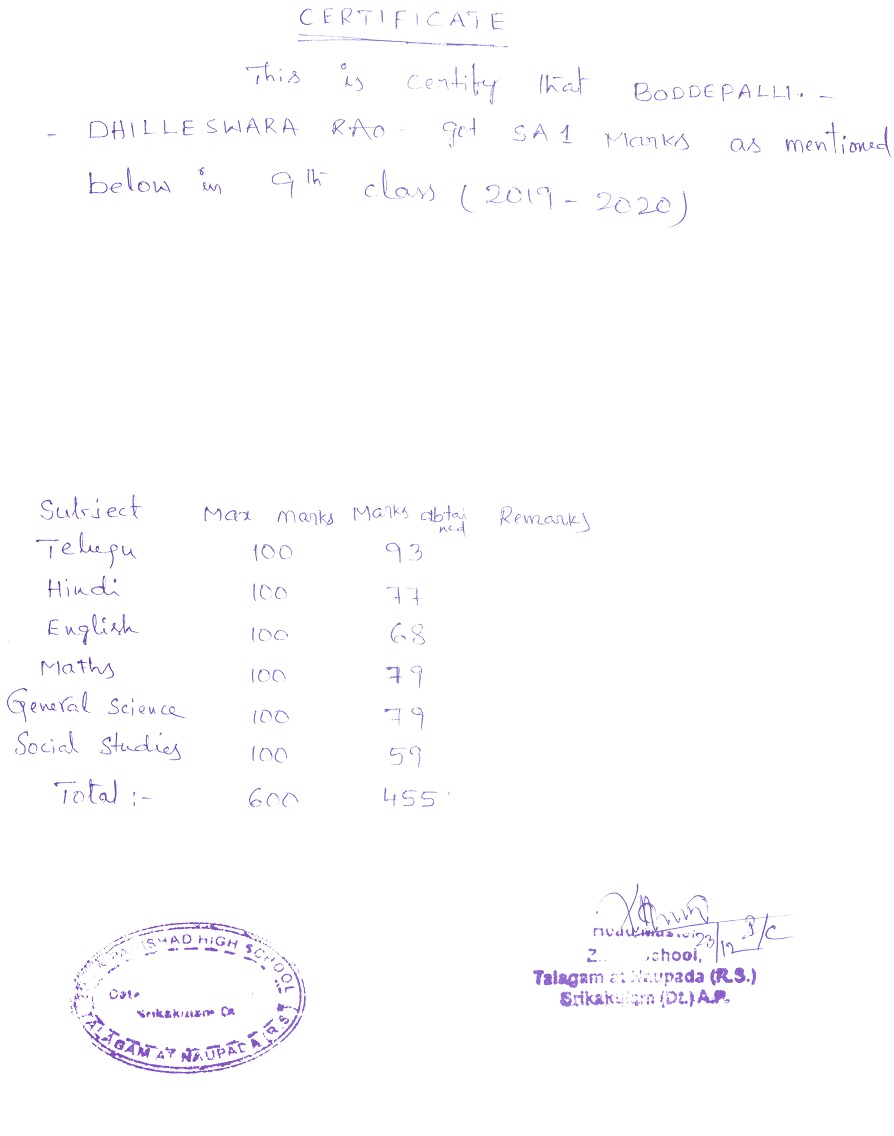 CERTIFICATE
This is certify that BODDEPALLI. -
- DHILLESWARA RAO. got SA1 Marks as mentioned
below in 9th class (2019 - 2020)
Subject Max marks Marks obtained Remarks
Telugu 100 93
Hindi 100 77
English 100 68
Maths 100 79
General Science 100 79
Social Studies 100 59
Total :- 600 455
SHAD HIGH SCHOOL
Date
Srikakulam Dt
TALAGAM AT NAUPADA (R.S)
23/12 I/C
School,
Talagam at Naupada (R.S.)
Srikakulam (Dt.) A.P.